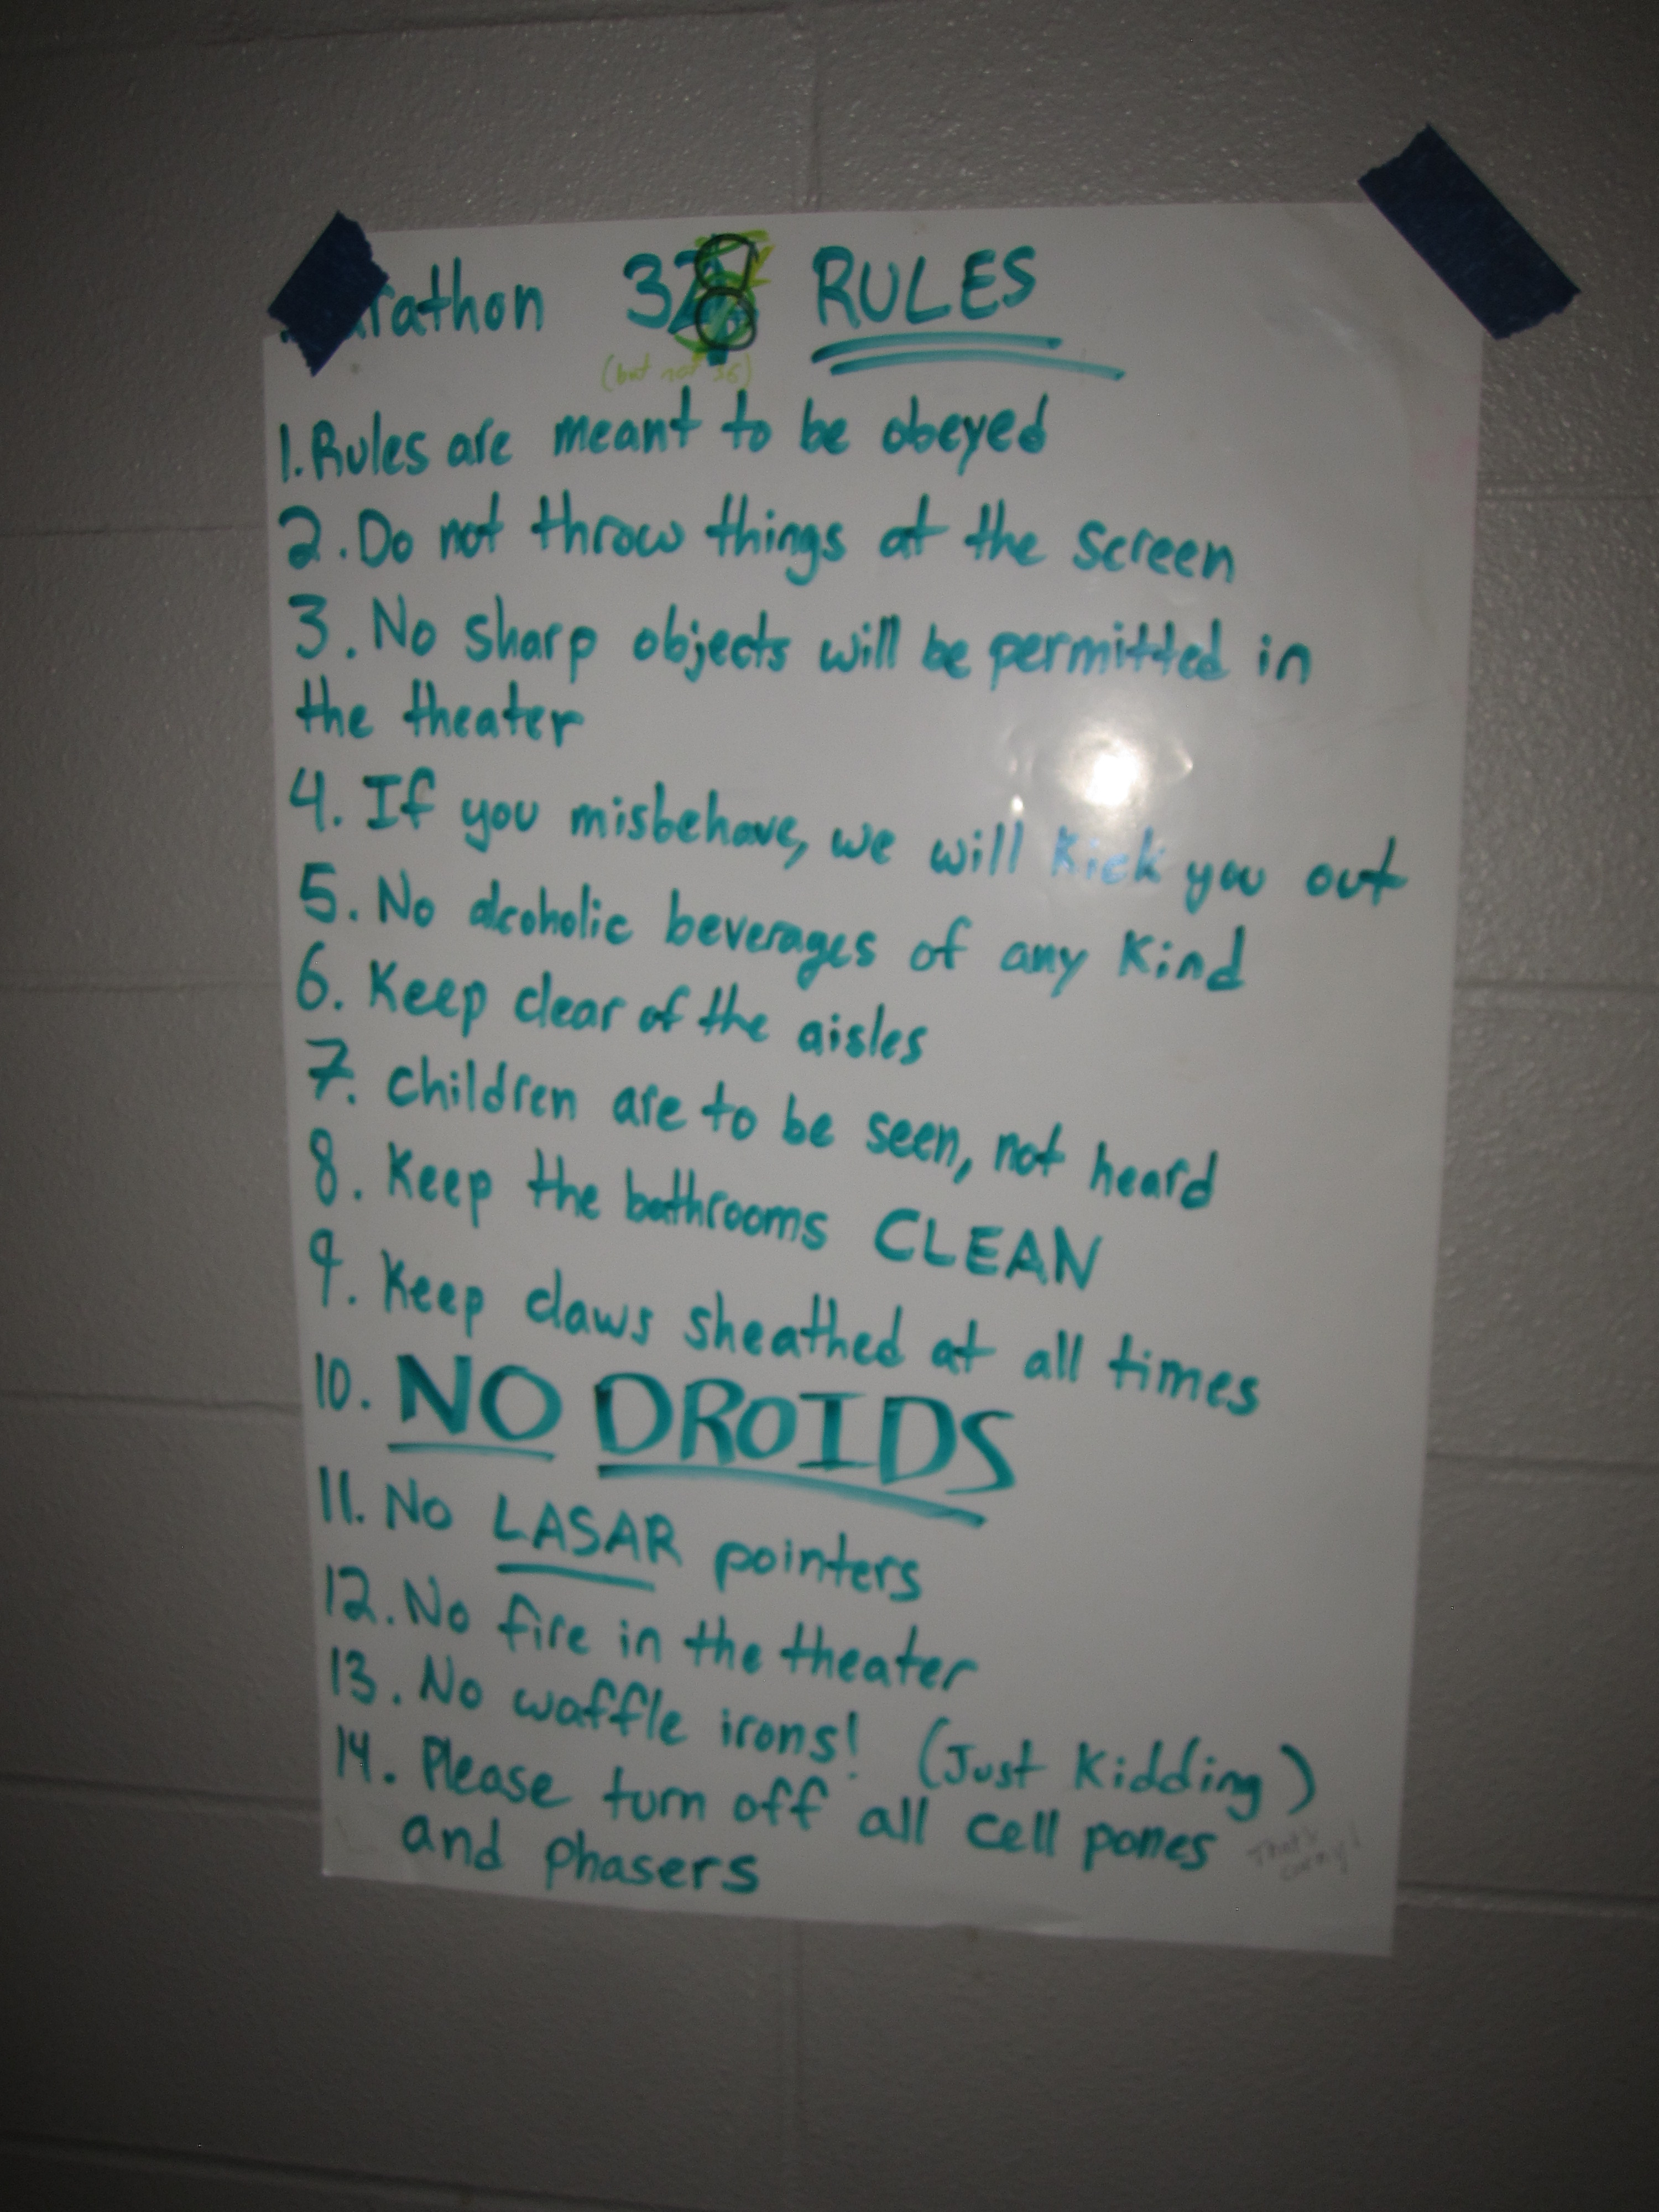 rathon 38 RULES
(but not 36)
1. Rules are meant to be obeyed
2. Do not throw things at the screen
3. No sharp objects will be permitted in
the theater
4. If you misbehave, we will kick you out
5. No alcoholic beverages of any kind
6. Keep clear of the aisles
7. Children are to be seen, not heard
8. Keep the bathrooms CLEAN
9. Keep claws sheathed at all times
10. NO DROIDS
11. No LASAR pointers
12. No fire in the theater
13. No waffle irons! (Just Kidding)
14. Please turn off all cell pones
and phasers
That's